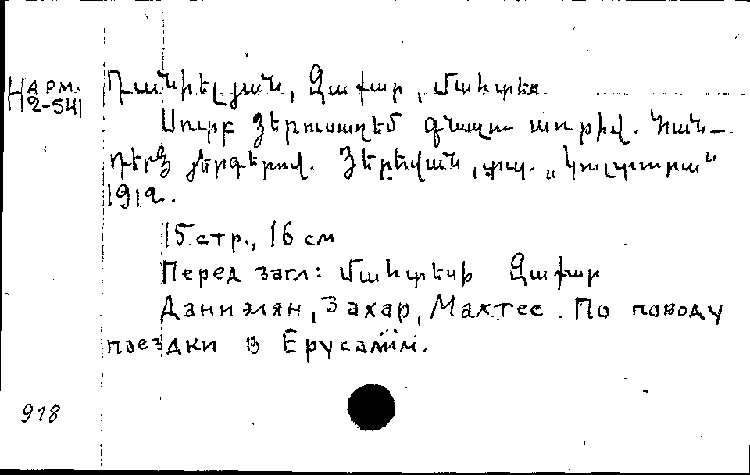 Н арм.
2-541
Դանիելյան, Զաքար, Մահտես.
Սուրբ Յերուսաղեմ գնալու առթիվ. Հան-
դերձ յերգերով. Յերեվան, տպ. „Կուլտուրա“
1912.
15 стр., 16 см
Перед загл: Մահտեսի Զաքար
Даниэлян, Захар, Махтес. По поводу
поездки в Ерусалим.
918